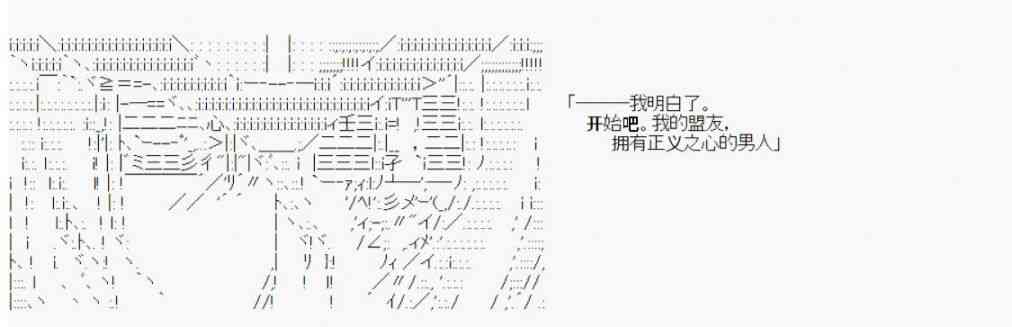 「―――我明白了。
开始吧。我的盟友，
拥有正义之心的男人」